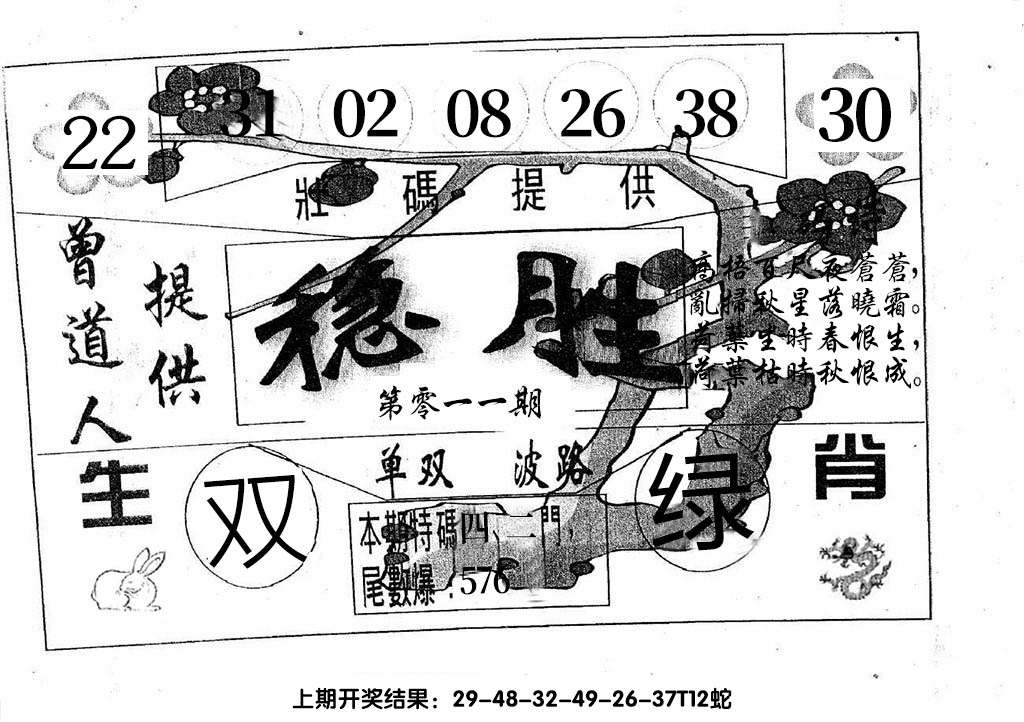 22 31 02 08 26 38 30
壯碼提供
曾道人
提供
稳胜
第零一一期
高梧百尺夜蒼蒼，
亂掃秋星落曉霜。
荷葉生時春恨生，
荷葉枯時秋恨成。
生肖
单双 波路
双
绿
本期特碼四、二門，
尾數爆：576
上期开奖结果：29-48-32-49-26-37T12蛇